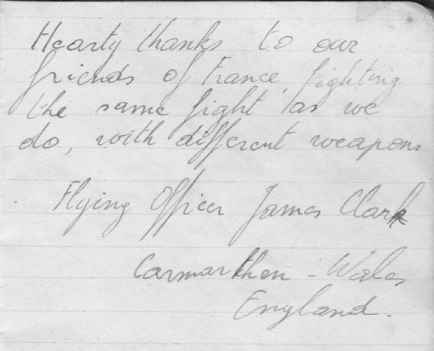 Hearty thanks to our
friends of France, fighting
the same fight as we
do, with different weapons
Flying Officer James Clark
Carmarthen - Wales
England.